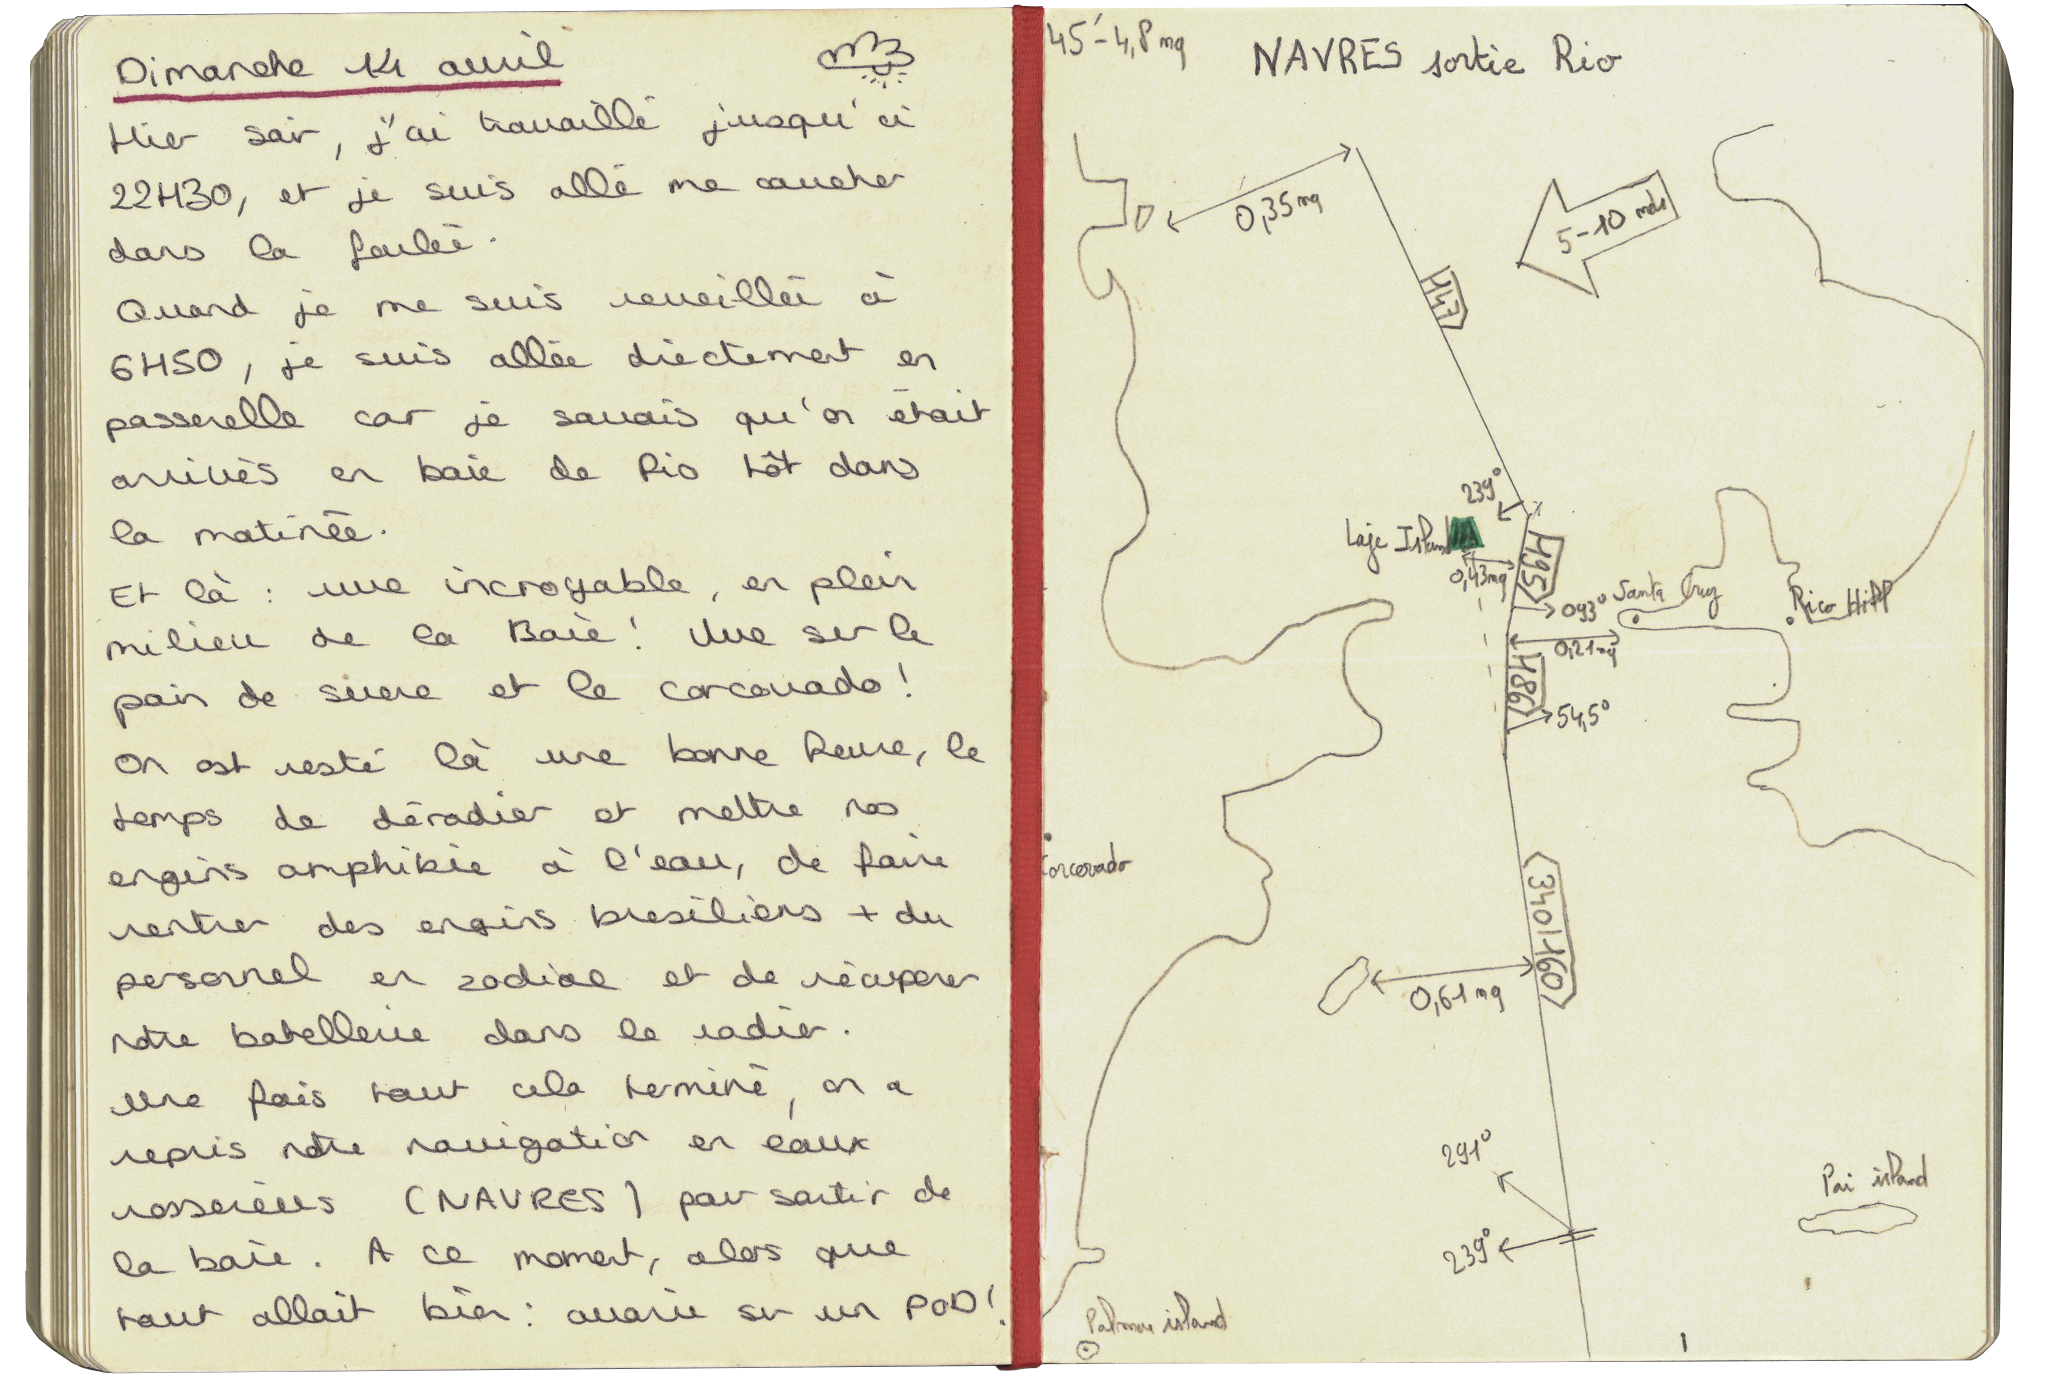 Dimanche 14 avril
Hier soir, j'ai travaillé jusqu'à
22H30, et je suis allé me coucher
dans la foulée.
Quand je me suis réveillée à
6H50, je suis allée diectement en
passerelle car je savais qu'on était
arrivés en baie de Rio tôt dans
la matinée.
Et là : vue incroyable, en plein
milieu de la Baie ! Vue sur le
pain de sucre et le corcovado !
On est resté là une bonne heure, le
temps de déradier et mettre nos
engins amphibie à l'eau, de faire
rentrer des engins bresiliens + du
personnel en zodiac et de récuperer
notre batellerie dans le radier.
Une fois tout cela terminé, on a
repris notre navigation en eaux
resserrées (NAVRES) pour sortir de
la baie. A ce moment, alors que
tout allait bien : avarie sur un POD !
45' - 4,8 mq
NAVRES sortie Rio
0,35 mq
5-10 nds
147
239°
Laje Island
0,43 mq
195
093°
Santa Cruz
Rico Hill
0,21 mq
186
54,5°
Corcovado
340/160
0,61 mq
291°
239°
Pai island
Palmas island
1